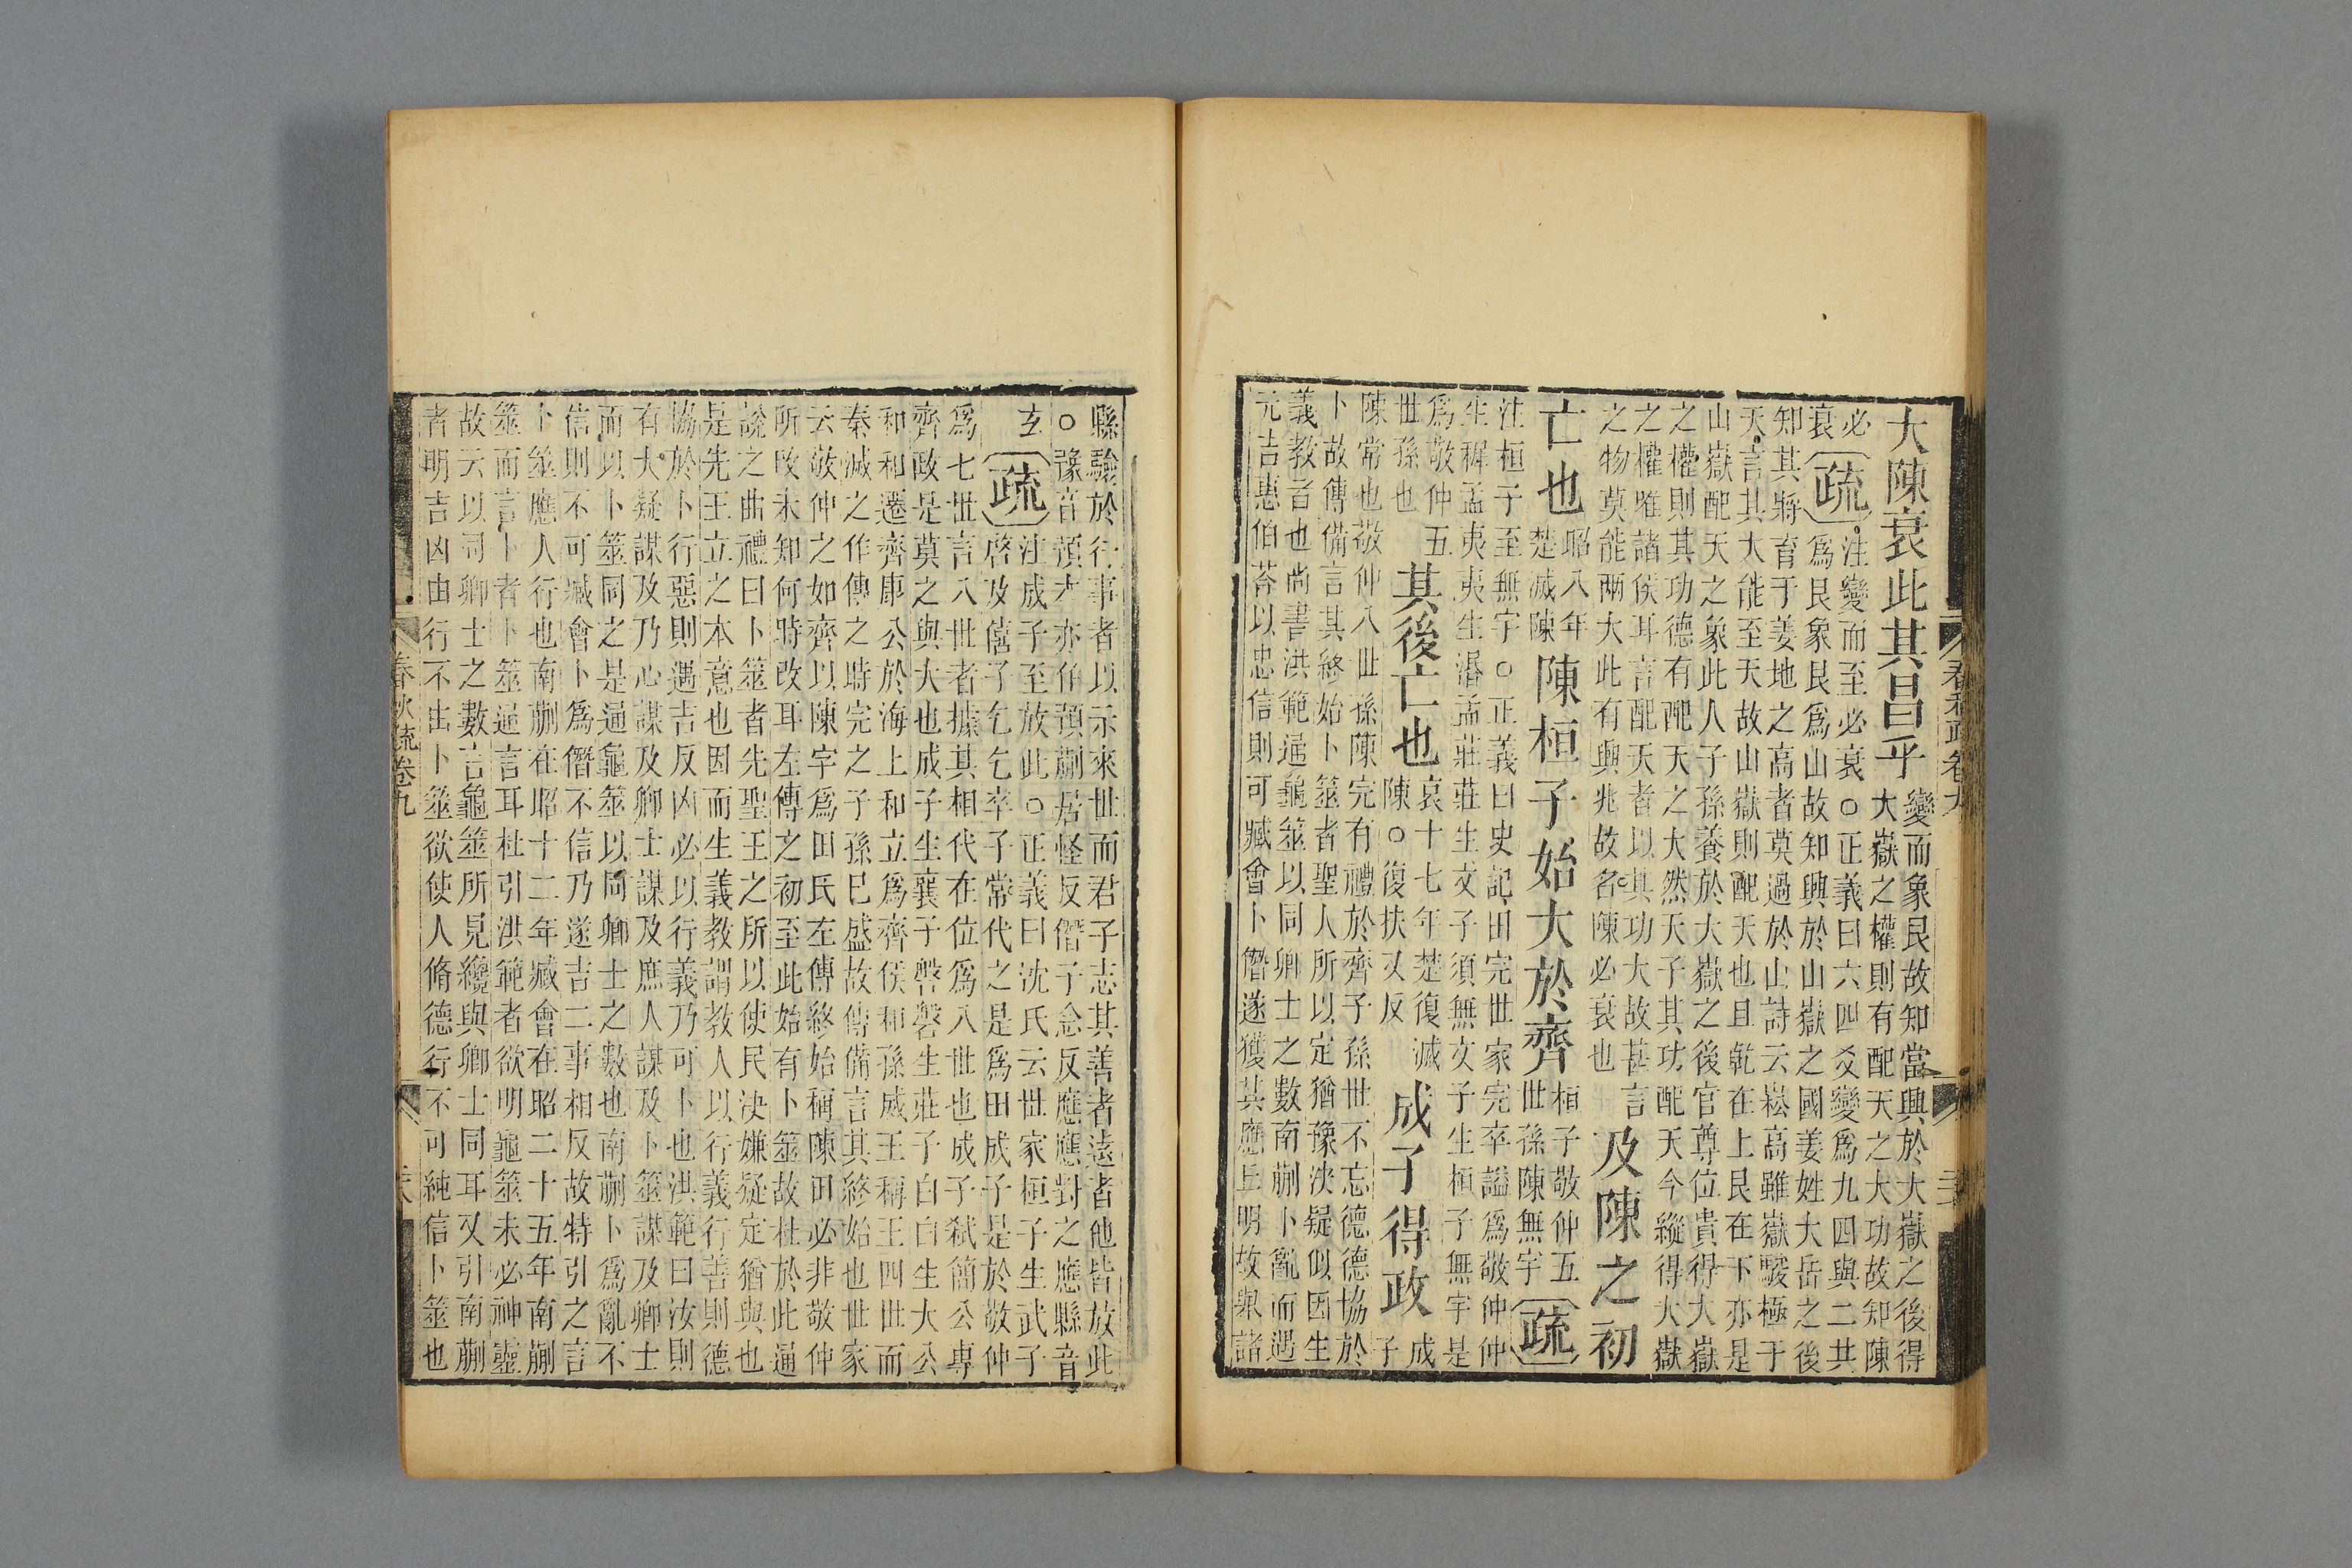 大陳衰此其昌乎
變而象艮故知當興於大嶽之後得
大嶽之權則有配天之大功故知陳
必
衰
疏
注變而至必衰○正義曰六四爻變爲九四與二共
爲艮象艮爲山故知興於山嶽之國姜姓大岳之後
知其將育于姜地之高者莫過於山詩云崧高雖嶽駿極于
天言其大能至天故山嶽則配天也且乾在上艮在下亦是
山嶽配天之象此人子孫養於大嶽之後官尊位貴得大嶽
之權則其功德有配天之大然天子其功配天今縱得大嶽
之權唯諸侯耳言配天者以其功大故甚言
之物莫能兩大此有興兆故名陳必衰也
及陳之初
亡也
昭八年
楚滅陳
陳桓子始大於齊
桓子敬仲五
世孫陳無宇
疏
注桓子至無宇○正義曰史記田完世家完卒謚爲敬仲仲
生穉孟夷夷生湣孟莊莊生文子須無文子生桓子無宇是
爲敬仲五
世孫也
其後亡也
哀十七年楚復滅
陳○復扶又反
成子得政
成
子
陳常也敬仲八世孫陳完有禮於齊子孫世不忘德德協於
卜故傳備言其終始卜筮者聖人所以定猶豫決疑似因生
義教者也尚書洪範通龜筮以同卿士之數南蒯卜亂而遇
元吉惠伯荅以忠信則可臧會卜僭遂獲其應丘明故舉諸
縣驗於行事者以示來世而君子志其善者遠者他皆放此
○豫音預才亦作預蒯居怪反僭子念反應應對之應縣音
玄
疏
注成子至放此○正義曰沈氏云世家桓子生武子
啓及僖子乞乞卒子常代之是爲田成子是於敬仲
爲七世言八世者據其相代在位爲八世也成子弑簡公專
齊政是莫之與大也成子生襄子磐磐生莊子白白生大公
和和遷齊康公於海上和立爲齊侯和孫威王稱王四世而
秦滅之作傳之時完之子孫已盛故傳備言其終始也世家
云敬仲之如齊以陳字爲田氏左傳終始稱陳田必非敬仲
所改未知何時改耳左傳之初至此始有卜筮故杜於此通
說之曲禮曰卜筮者先聖王之所以使民決嫌疑定猶與也
是先王立之本意也因而生義教謂教人以行義行善則德
協於卜行惡則遇吉反凶必以行義乃可卜也洪範曰汝則
有大疑謀及乃心謀及卿士謀及庶人謀及卜筮謀及卿士
而以卜筮同之是通龜筮以同卿士之數也南蒯卜爲亂不
信則不可臧會卜爲僭不信乃遂吉二事相反故特引之言
卜筮應人行也南蒯在昭十二年臧會在昭二十五年南蒯
筮而言卜者卜筮通言耳杜引洪範者欲明龜筮未必神靈
故云以同卿士之數言龜筮所見纔與卿士同耳又引南蒯
者明吉凶由行不由卜筮欲使人脩德行不可純信卜筮也
春秋疏卷九